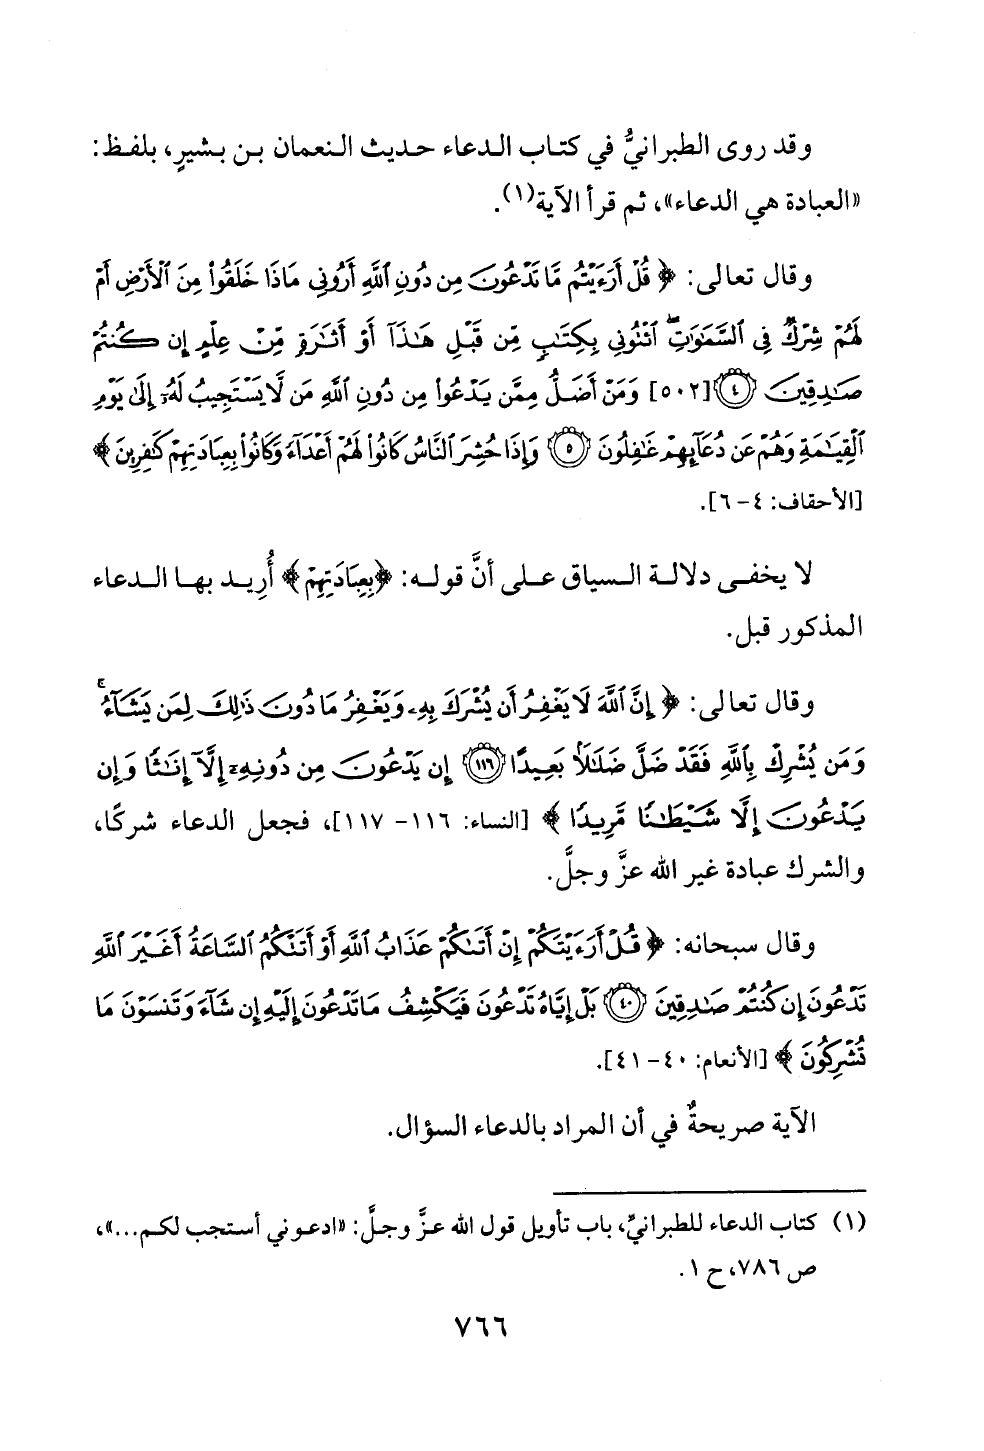 وقد روى الطبرانيُّ في كتاب الدعاء حديث النعمان بن بشيرٍ، بلفظ:
«العبادة هي الدعاء»، ثم قرأ الآية(١).
وقال تعالى: ﴿قُلْ أَرَءَيْتُم مَّا تَدْعُونَ مِن دُونِ ٱللَّهِ أَرُونِي مَاذَا خَلَقُوا۟ مِنَ ٱلْأَرْضِ أَمْ
لَهُمْ شِرْكٌ فِي ٱلسَّمَٰوَٰتِ ۖ ٱئْتُونِي بِكِتَٰبٍ مِّن قَبْلِ هَٰذَآ أَوْ أَثَٰرَةٍ مِّنْ عِلْمٍ إِن كُنتُمْ
صَٰدِقِينَ ٤ [٥٠٢] وَمَنْ أَضَلُّ مِمَّن يَدْعُوا۟ مِن دُونِ ٱللَّهِ مَن لَّا يَسْتَجِيبُ لَهُۥٓ إِلَىٰ يَوْمِ
ٱلْقِيَٰمَةِ وَهُمْ عَن دُعَآئِهِمْ غَٰفِلُونَ ٥ وَإِذَا حُشِرَ ٱلنَّاسُ كَانُوا۟ لَهُمْ أَعْدَآءً وَكَانُوا۟ بِعِبَادَتِهِمْ كَٰفِرِينَ﴾
[الأحقاف: ٤- ٦].
لا يخفى دلالة السياق على أنَّ قوله: ﴿بِعِبَادَتِهِمْ﴾ أُرِيد بها الدعاء
المذكور قبل.
وقال تعالى: ﴿إِنَّ ٱللَّهَ لَا يَغْفِرُ أَن يُشْرَكَ بِهِۦ وَيَغْفِرُ مَا دُونَ ذَٰلِكَ لِمَن يَشَآءُ ۚ
وَمَن يُشْرِكْ بِٱللَّهِ فَقَدْ ضَلَّ ضَلَٰلًۢا بَعِيدًا ١١٦ إِن يَدْعُونَ مِن دُونِهِۦٓ إِلَّآ إِنَٰثًا وَإِن
يَدْعُونَ إِلَّا شَيْطَٰنًا مَّرِيدًا﴾ [النساء: ١١٦- ١١٧]، فجعل الدعاء شركًا،
والشرك عبادة غير الله عزَّ وجلَّ.
وقال سبحانه: ﴿قُلْ أَرَءَيْتَكُمْ إِنْ أَتَىٰكُمْ عَذَابُ ٱللَّهِ أَوْ أَتَتْكُمُ ٱلسَّاعَةُ أَغَيْرَ ٱللَّهِ
تَدْعُونَ إِن كُنتُمْ صَٰدِقِينَ ٤٠ بَلْ إِيَّاهُ تَدْعُونَ فَيَكْشِفُ مَا تَدْعُونَ إِلَيْهِ إِن شَآءَ وَتَنسَوْنَ مَا
تُشْرِكُونَ﴾ [الأنعام: ٤٠- ٤١].
الآية صريحةٌ في أن المراد بالدعاء السؤال.
(١) كتاب الدعاء للطبرانيِّ، باب تأويل قول الله عزَّ وجلَّ: «ادعوني أستجب لكم...»،
ص ٧٨٦، ح ١.
٧٦٦